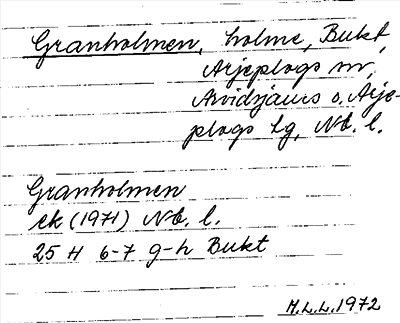 Granholmen, holme, Bukt,
Arjeplogs sn,
Arvidsjaurs o, Arje-
plogs lg, Nb. l.
Granholmen
ek (1971) Nb. l.
25 H 6-7 g-h Bukt
M.L.L. 1972